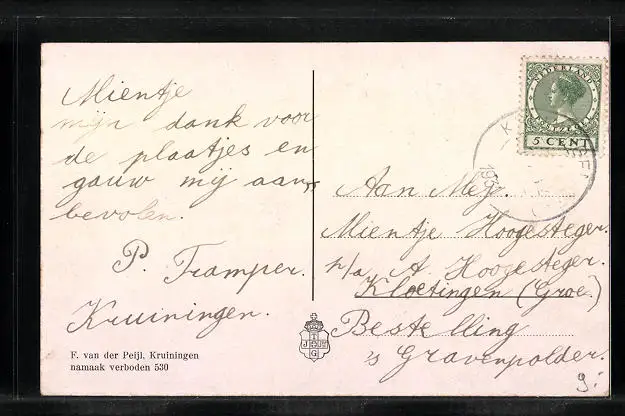 Mientje
mijn dank voor
de plaatjes en
gauw mij aan
bevolen.
P. Tramper.
Kruiningen.
F. van der Peijl, Kruiningen
namaak verboden 530
NEDERLAND
5 CENT
Aan Mej.
Mientje Hoogesteger.
p/a A. Hoogesteger.
Kloetingen (Groe.)
Bestelling
's Gravenpolder.